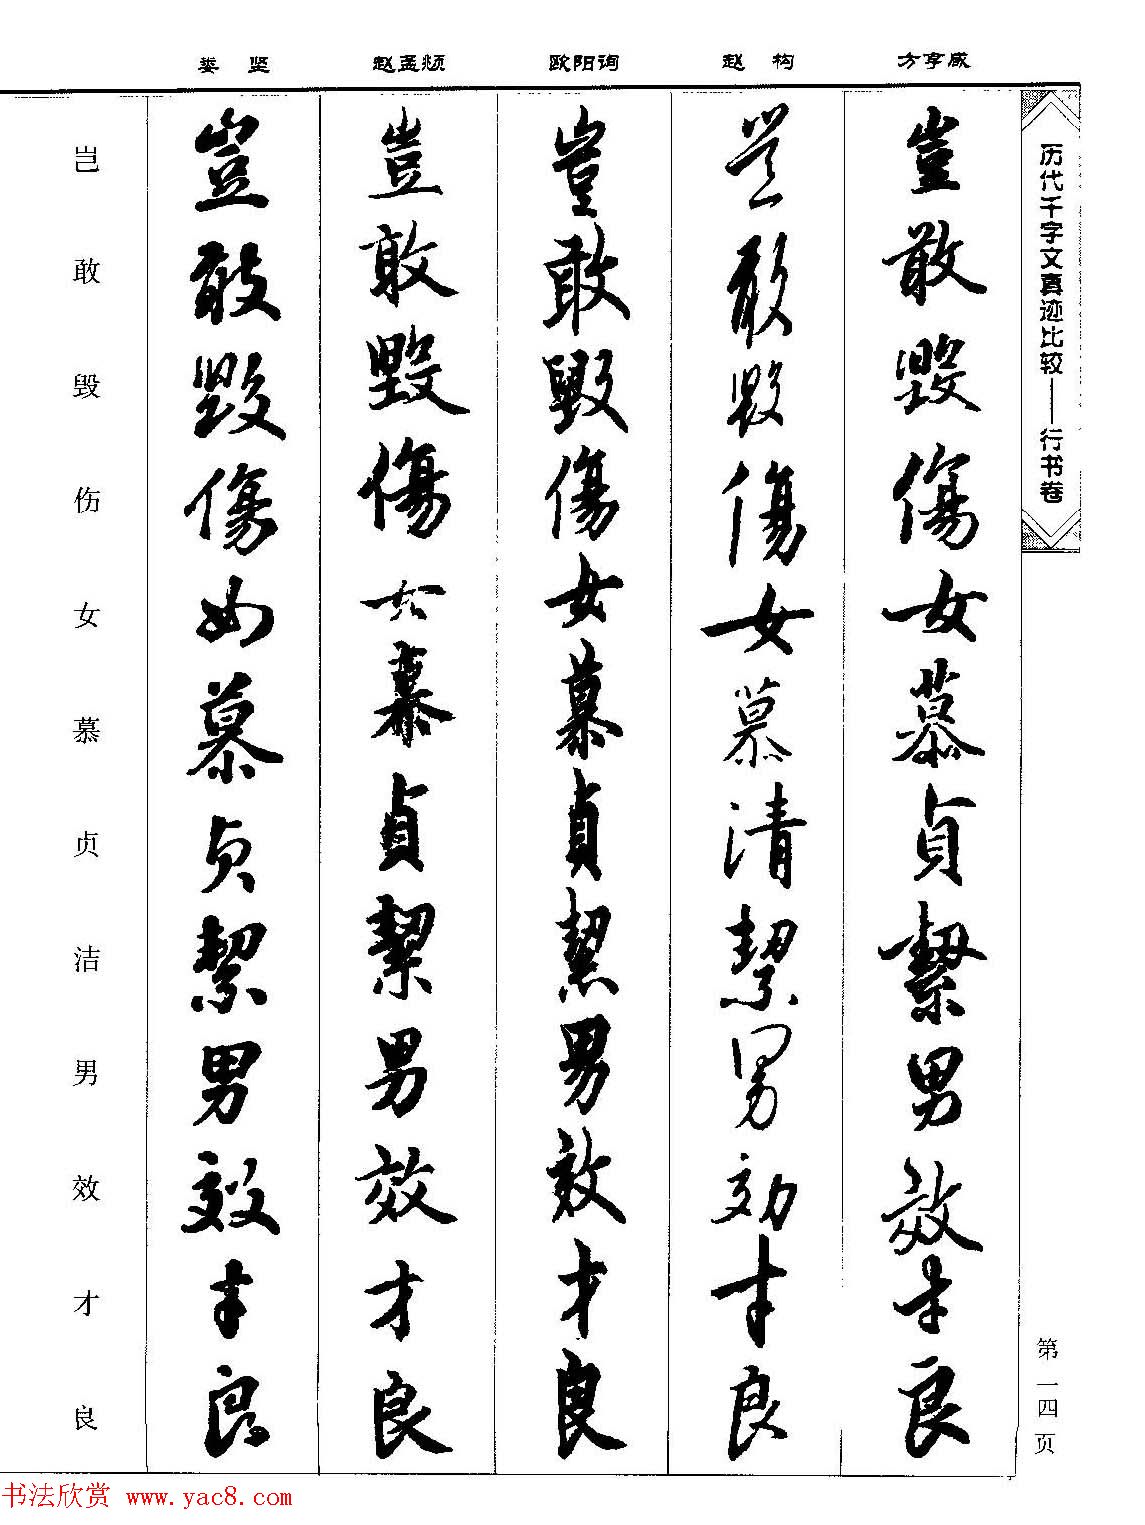 历代千字文真迹比较——行书卷
第一四页
方亨咸
豈敢毀傷女慕貞絜男效才良
赵构
豈敢毀傷女慕清絜男効才良
欧阳询
豈敢毀傷女慕貞絜男效才良
赵孟頫
豈敢毀傷女慕貞絜男效才良
娄坚
豈敢毀傷女慕貞絜男效才良
岂敢毁伤女慕贞洁男效才良
书法欣赏 www.yac8.com